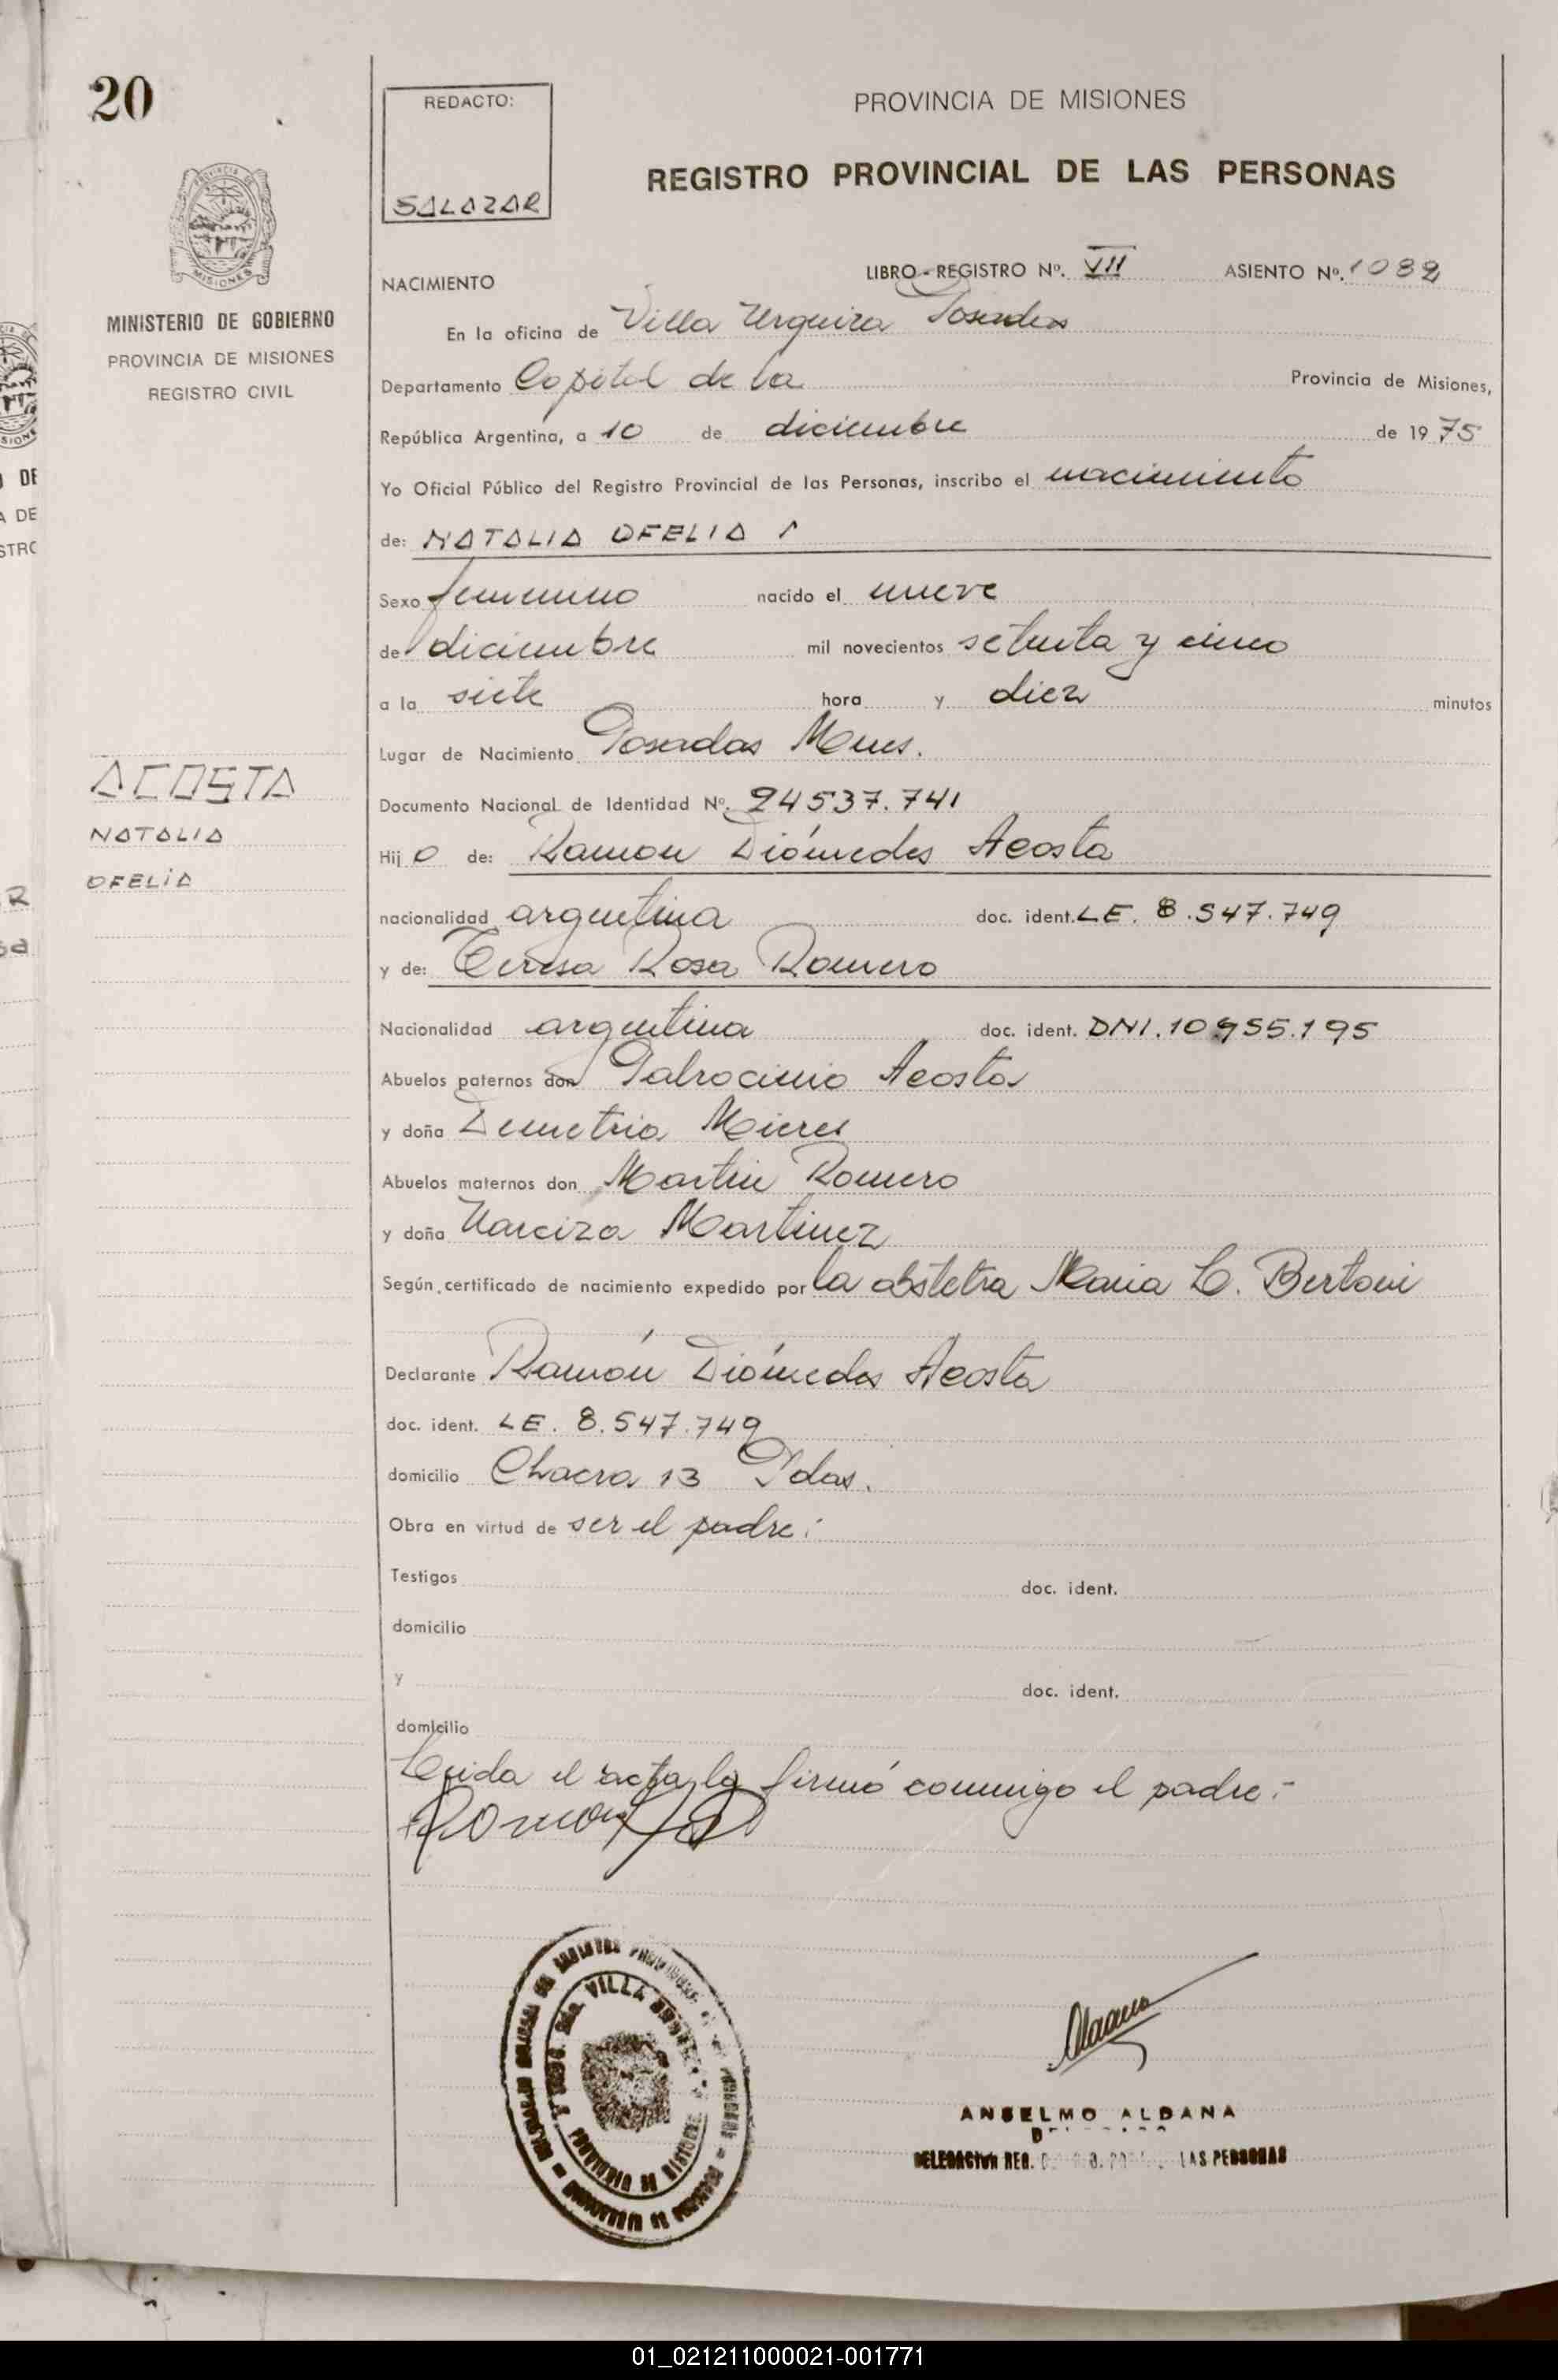 20
REDACTO:
SALAZAR
PROVINCIA DE MISIONES
REGISTRO PROVINCIAL DE LAS PERSONAS
MINISTERIO DE GOBIERNO
PROVINCIA DE MISIONES
REGISTRO CIVIL
NACIMIENTO
LIBRO - REGISTRO Nº. VII ASIENTO Nº. 1082
En la oficina de Villa Urquiza Posadas
Departamento Capital de la Provincia de Misiones,
República Argentina, a 10 de diciembre de 1975
Yo Oficial Público del Registro Provincial de las Personas, inscribo el nacimiento
de: NATALIA OFELIA
Sexo femenino nacido el nueve
de diciembre mil novecientos setenta y cinco
a la siete hora y diez minutos
Lugar de Nacimiento Posadas Mnes.
ACOSTA
NATALIA
OFELIA
Documento Nacional de Identidad Nº. 24537.741
Hij a de: Ramón Diómedes Acosta
nacionalidad argentina doc. ident. LE. 8.547.749
y de: Teresa Rosa Romero
Nacionalidad argentina doc. ident. DNI. 10.955.195
Abuelos paternos don Patrocinio Acosta
y doña Demetria Mieres
Abuelos maternos don Martin Romero
y doña Narciza Martinez
Según certificado de nacimiento expedido por la obstetra Maria L. Bertoni
Declarante Ramón Diómedes Acosta
doc. ident. LE. 8.547.749
domicilio Chacra 13 Pdas.
Obra en virtud de ser el padre.-
Testigos doc. ident.
domicilio
y doc. ident.
domicilio
Leida el acta, la firmó conmigo el padre.-
VILLA
PROVINCIA DE MISIONES
ANSELMO ALDANA
DELEGACION REG. LAS PERSONAS
01_021211000021-001771